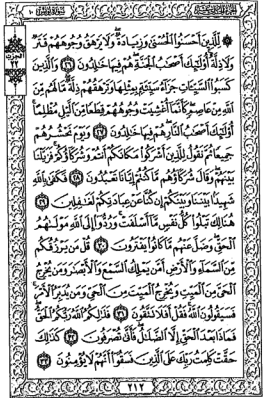 لِّلَّذِينَ أَحْسَنُوا الْحُسْنَىٰ وَزِيَادَةٌ وَلَا يَرْهَقُ وُجُوهَهُمْ قَتَرٌ
وَلَا ذِلَّةٌ أُولَٰئِكَ أَصْحَابُ الْجَنَّةِ هُمْ فِيهَا خَالِدُونَ ﴿٢٦﴾ وَالَّذِينَ
كَسَبُوا السَّيِّئَاتِ جَزَاءُ سَيِّئَةٍ بِمِثْلِهَا وَتَرْهَقُهُمْ ذِلَّةٌ مَّا لَهُم مِّنَ
اللَّهِ مِنْ عَاصِمٍ كَأَنَّمَا أُغْشِيَتْ وُجُوهُهُمْ قِطَعًا مِّنَ اللَّيْلِ مُظْلِمًا
أُولَٰئِكَ أَصْحَابُ النَّارِ هُمْ فِيهَا خَالِدُونَ ﴿٢٧﴾ وَيَوْمَ نَحْشُرُهُمْ
جَمِيعًا ثُمَّ نَقُولُ لِلَّذِينَ أَشْرَكُوا مَكَانَكُمْ أَنتُمْ وَشُرَكَاؤُكُمْ فَزَيَّلْنَا
بَيْنَهُمْ وَقَالَ شُرَكَاؤُهُم مَّا كُنتُمْ إِيَّانَا تَعْبُدُونَ ﴿٢٨﴾ فَكَفَىٰ بِاللَّهِ
شَهِيدًا بَيْنَنَا وَبَيْنَكُمْ إِن كُنَّا عَنْ عِبَادَتِكُمْ لَغَافِلِينَ ﴿٢٩﴾
هُنَالِكَ تَبْلُو كُلُّ نَفْسٍ مَّا أَسْلَفَتْ وَرُدُّوا إِلَى اللَّهِ مَوْلَاهُمُ
الْحَقِّ وَضَلَّ عَنْهُم مَّا كَانُوا يَفْتَرُونَ ﴿٣٠﴾ قُلْ مَن يَرْزُقُكُم
مِّنَ السَّمَاءِ وَالْأَرْضِ أَمَّن يَمْلِكُ السَّمْعَ وَالْأَبْصَارَ وَمَن يُخْرِجُ
الْحَيَّ مِنَ الْمَيِّتِ وَيُخْرِجُ الْمَيِّتَ مِنَ الْحَيِّ وَمَن يُدَبِّرُ الْأَمْرَ
فَسَيَقُولُونَ اللَّهُ فَقُلْ أَفَلَا تَتَّقُونَ ﴿٣١﴾ فَذَٰلِكُمُ اللَّهُ رَبُّكُمُ الْحَقُّ
فَمَاذَا بَعْدَ الْحَقِّ إِلَّا الضَّلَالُ فَأَنَّىٰ تُصْرَفُونَ ﴿٣٢﴾ كَذَٰلِكَ
حَقَّتْ كَلِمَتُ رَبِّكَ عَلَى الَّذِينَ فَسَقُوا أَنَّهُمْ لَا يُؤْمِنُونَ ﴿٣٣﴾
٢١٢